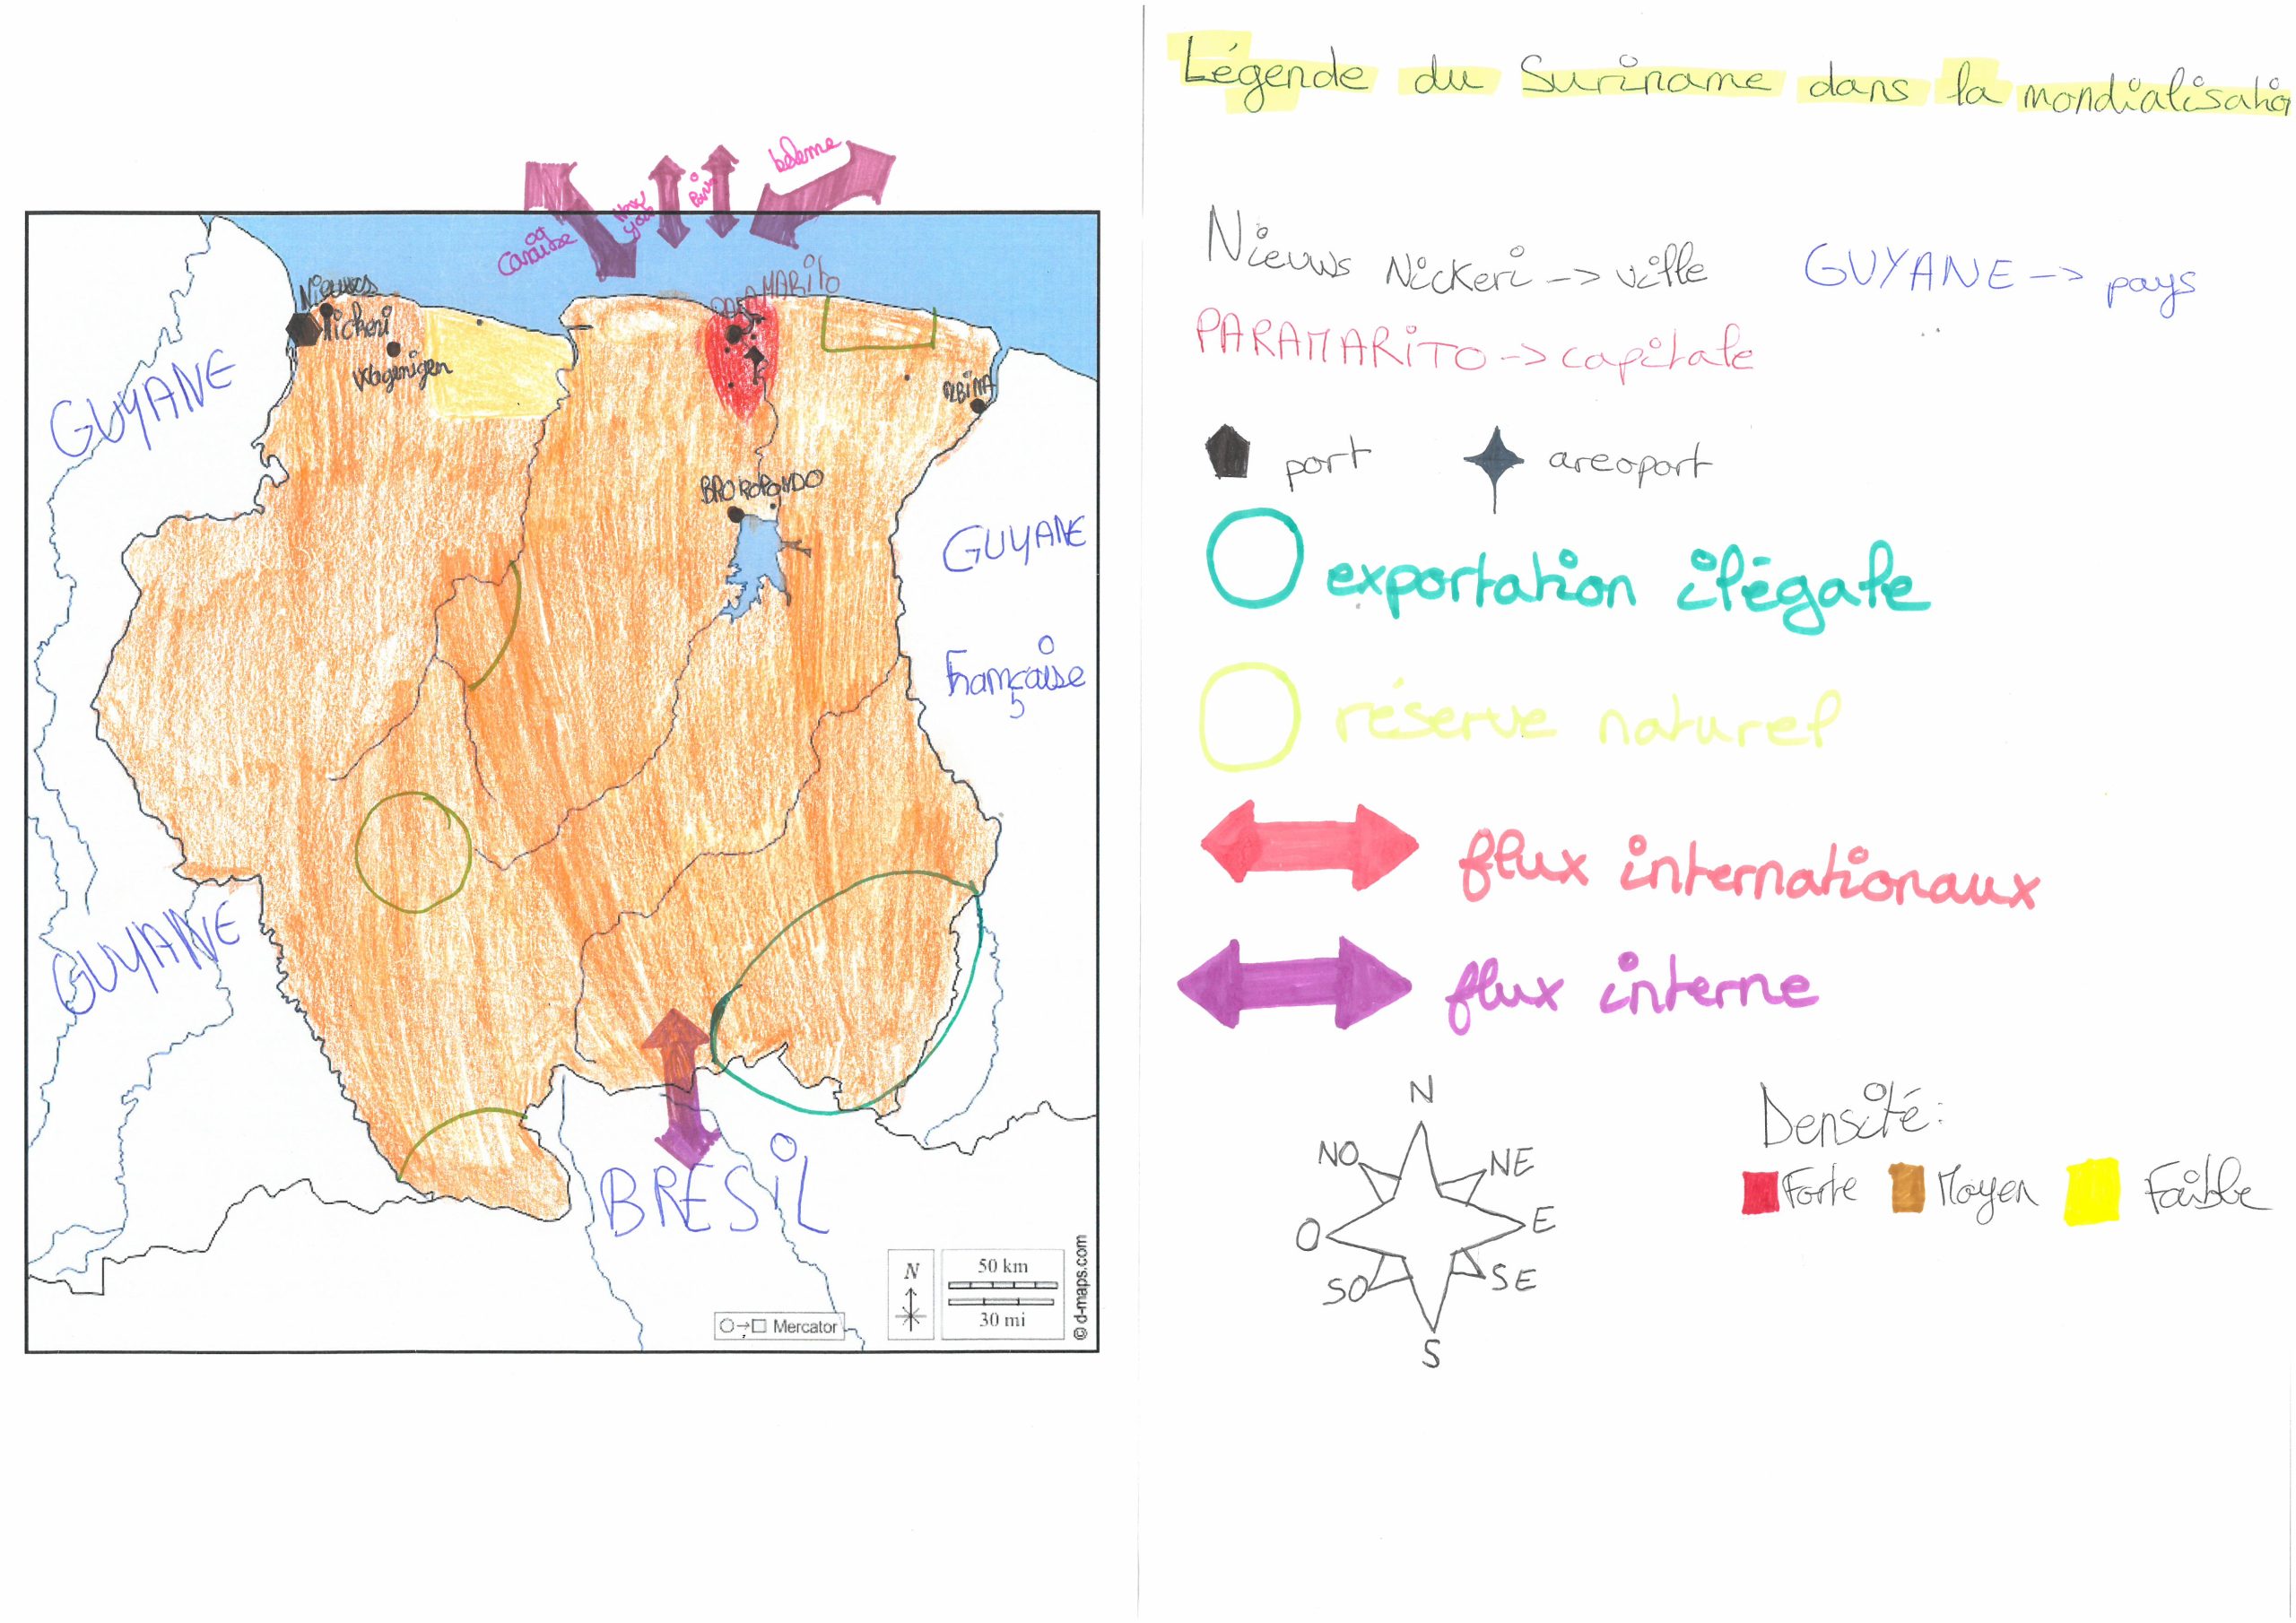 Légende du Suriname dans la mondialisatio
Nieuws Nickeri -> ville
GUYANE -> pays
PARAMARITO -> capitale
port
areoport
exportation ilégale
réserve naturel
flux internationaux
flux interne
N
NO
NE
O
E
SO
SE
S
Densité:
Forte
Moyen
Faible
Caraïbe
New
York
Paris
beleme
PARAMARITO
Nieuws
Nickeri
Wagenigen
ALBINA
BROKOPONDO
GUYANE
GUYANE
Française
GUYANE
BRESIL
N
50 km
30 mi
Mercator
© d-maps.com